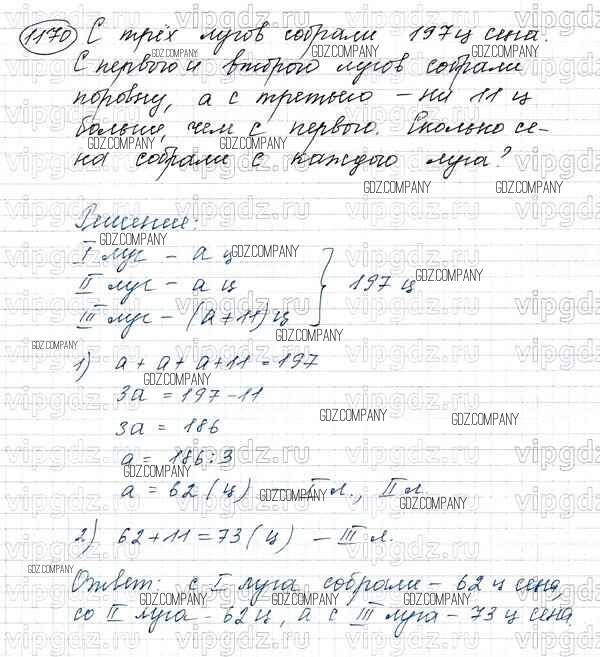 1170 С трёх лугов собрали 197 ц сена.
С первого и второго лугов собрали
поровну, а с третьего – на 11 ц
больше, чем с первого. Сколько се-
на собрали с каждого луга?
Решение:
I луг – а ц
II луг – а ц
III луг – (а+11) ц
197 ц
1) а + а + а + 11 = 197
3а = 197 - 11
3а = 186
а = 186 : 3
а = 62 (ц) – I л., II л.
2) 62 + 11 = 73 (ц) – III л.
Ответ: с I луга собрали – 62 ц сена,
со II луга - 62 ц, а с III луга – 73 ц сена
vipgdz.ru
GDZ.COMPANY